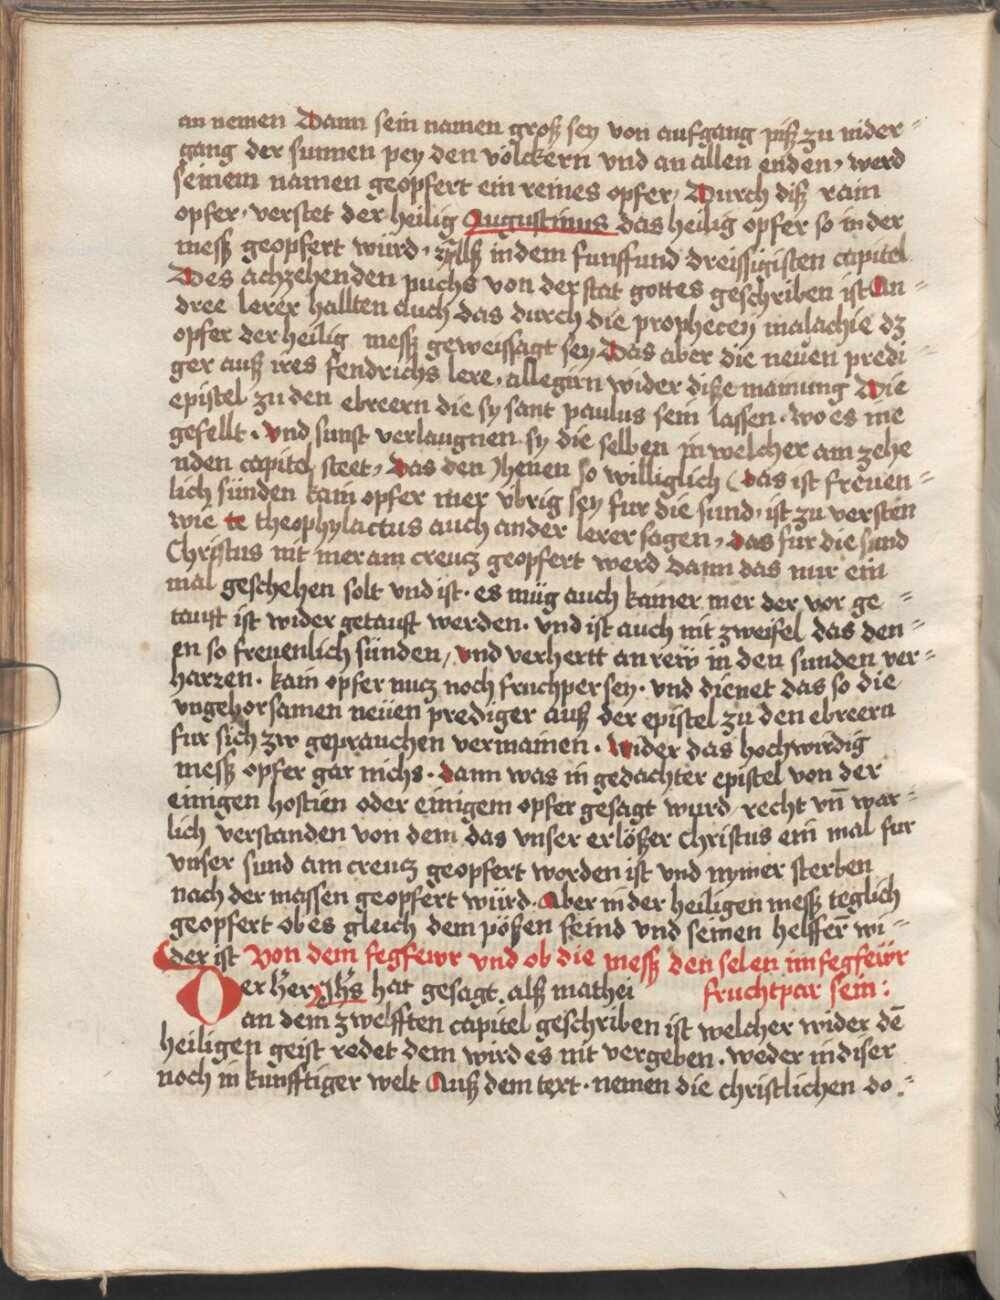 an nemen Dann sein namen groß sey von aufgang piß zu nider=
gang der sunnen pey den völckern vnd an allen enden, werd
seinem namen geopfert ein reines opfer, Durch diß rain
opfer, verstet der heilig Augustinus das heilig opfer so in der
mess geopfert würd, in dem funffund dreissigisten capitel
Des achzehenden puchs von der stat gottes geschriben ist An=
dree lerer hallten auch das durch die prophecey malachie dz
opfer der heilig mess geweissagt sey Das aber die neuen predi=
ger auß ires fendrichs lere, allegirn wider diße mainung Die
epistel zu den ebreern die sy sant paulus sein lassen. wo es ine
gefellt. vnd sunst verlaugnen sy die selben in welcher am zehe
nden capitel steet, Das den Jhenen so williglich (das ist freuen=
lich sünden kain opfer mer vbrig sey fur die sund, ist zu versten
wie te theophylactus auch ander lerer sagen, das fur die sund
Christus nit mer am creucz geopfert werd dann das nur ein
mal geschehen solt vnd ist. es müg auch kainer mer der vor ge=
taust ist wider getaust werden. vnd ist auch nit zweifel das den=
en so freuenlich sünden, vnd verhertt an rew in den sunden ver=
harzen. kain opfer nucz noch fruchper sey. vnd dienet das so die
vngehorsamen neuen prediger auß der epistel zu den ebreern
fur sich zw geprauchen vermainen. wider das hochwirdig
mess opfer gar nichs. dann was in gedachter epistel von der
einigen hostien oder einigem opfer gesagt wurd, recht vn̄ war=
lich verstanden von dem das vnser erlößer Christus ein mal fur
vnser sund am creucz geopfert worden ist vnd nymer sterben
nach der massen geopfert würd. Aber in der heiligen mess teglich
geopfert ob es gleich dem pößen feind vnd seinen helffer̄ wi=
der ist Von dem fegfewr vnd ob die mess den selen im fegfewr
fruchtpar sein:
Der her Jhs hat gesagt. alß mathei
an dem zwelfften capitel geschriben ist welcher wider dē
heiligen geist redet dem wird es nit vergeben. weder in diser
noch in kunfftiger welt Auß dem text. nemen die christlichen do=